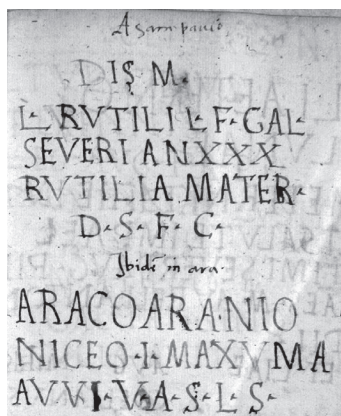 DIS M.
L. RVTILI L. F. GAL.
SEVERI ANXXX
RVTILIA MATER.
D. S. F. C.
Ibidē in ara.
ARACOARANIO
NICEO.I.MAXVMA
AVVI.V.A.S.L.S.